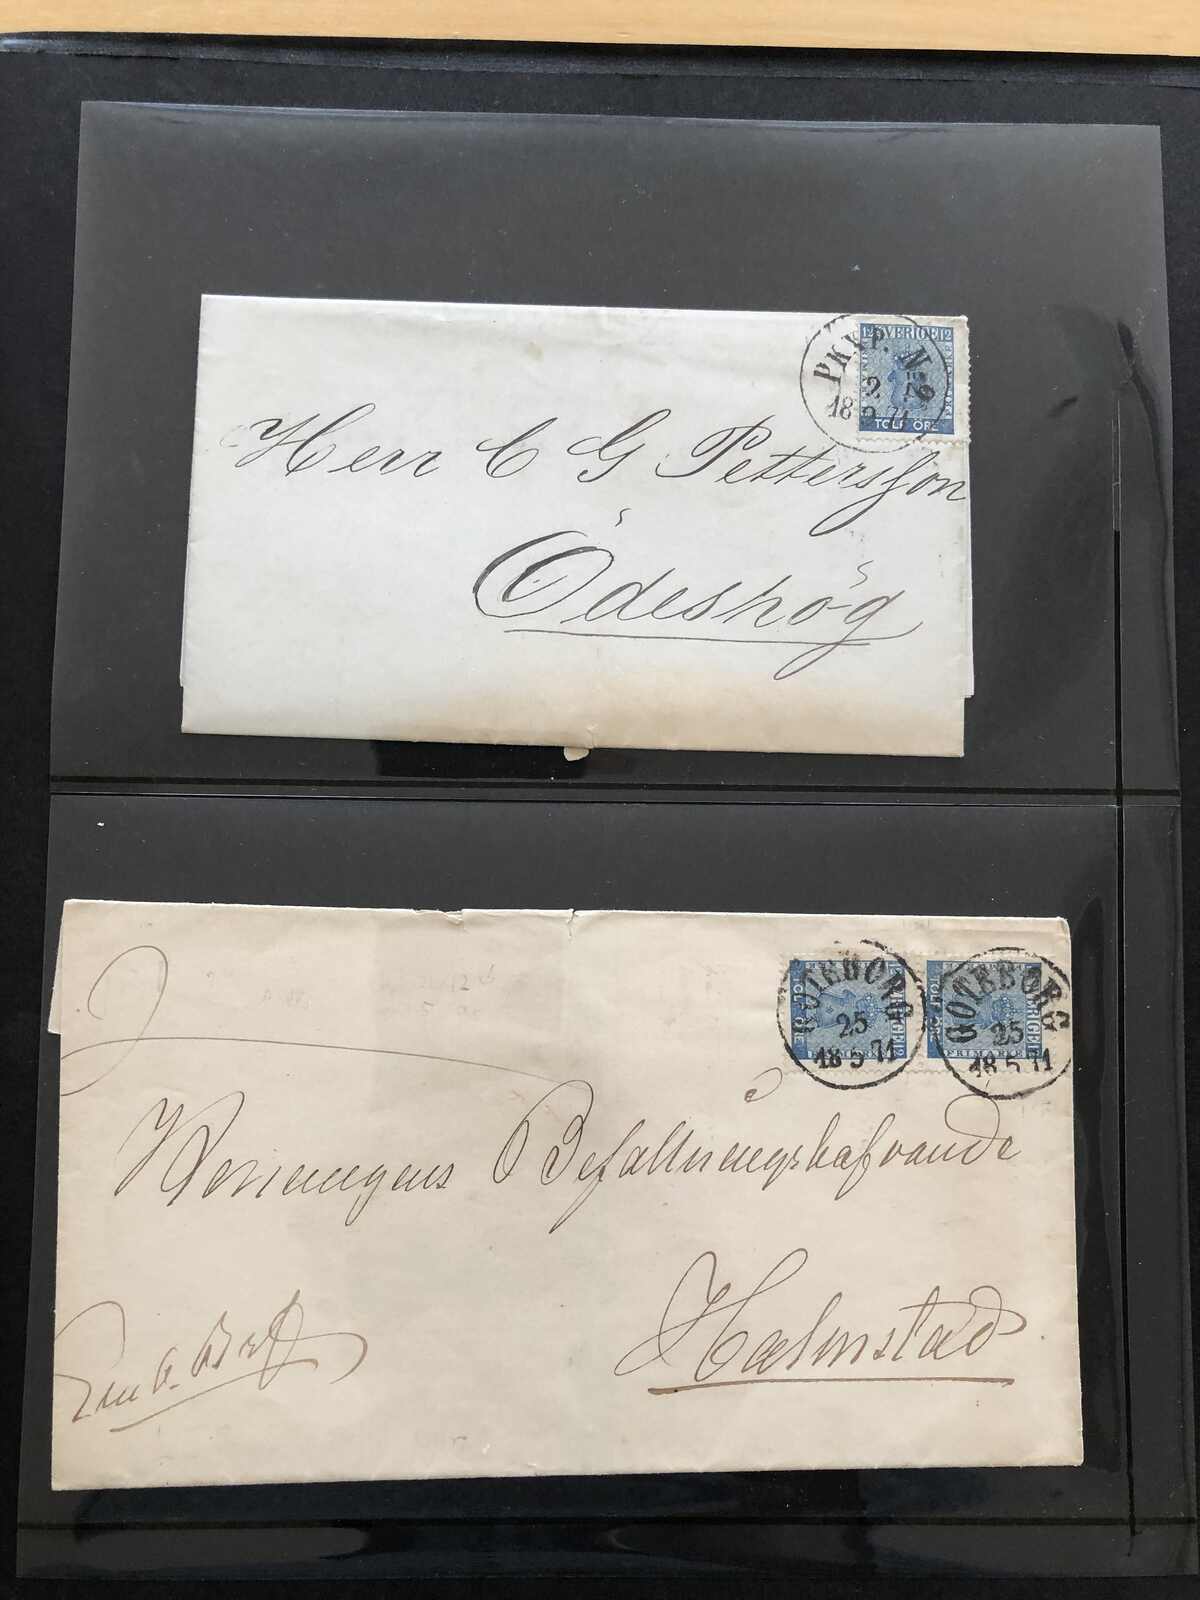 12 SVERIGE 12
PKXP. N.
2
18 9 71
TOLF ÖRE
Herr C G Pettersson
Ödeshög
GÖTEBORG
25
18 5 71
TOLF ÖRE
SVERIGE 12
FRIMÄRKE
GÖTEBORG
25
18 5 71
TOLF ÖRE
SVERIGE
FRIMÄRKE
12
Konungens Befallningshafvande
Halmstad